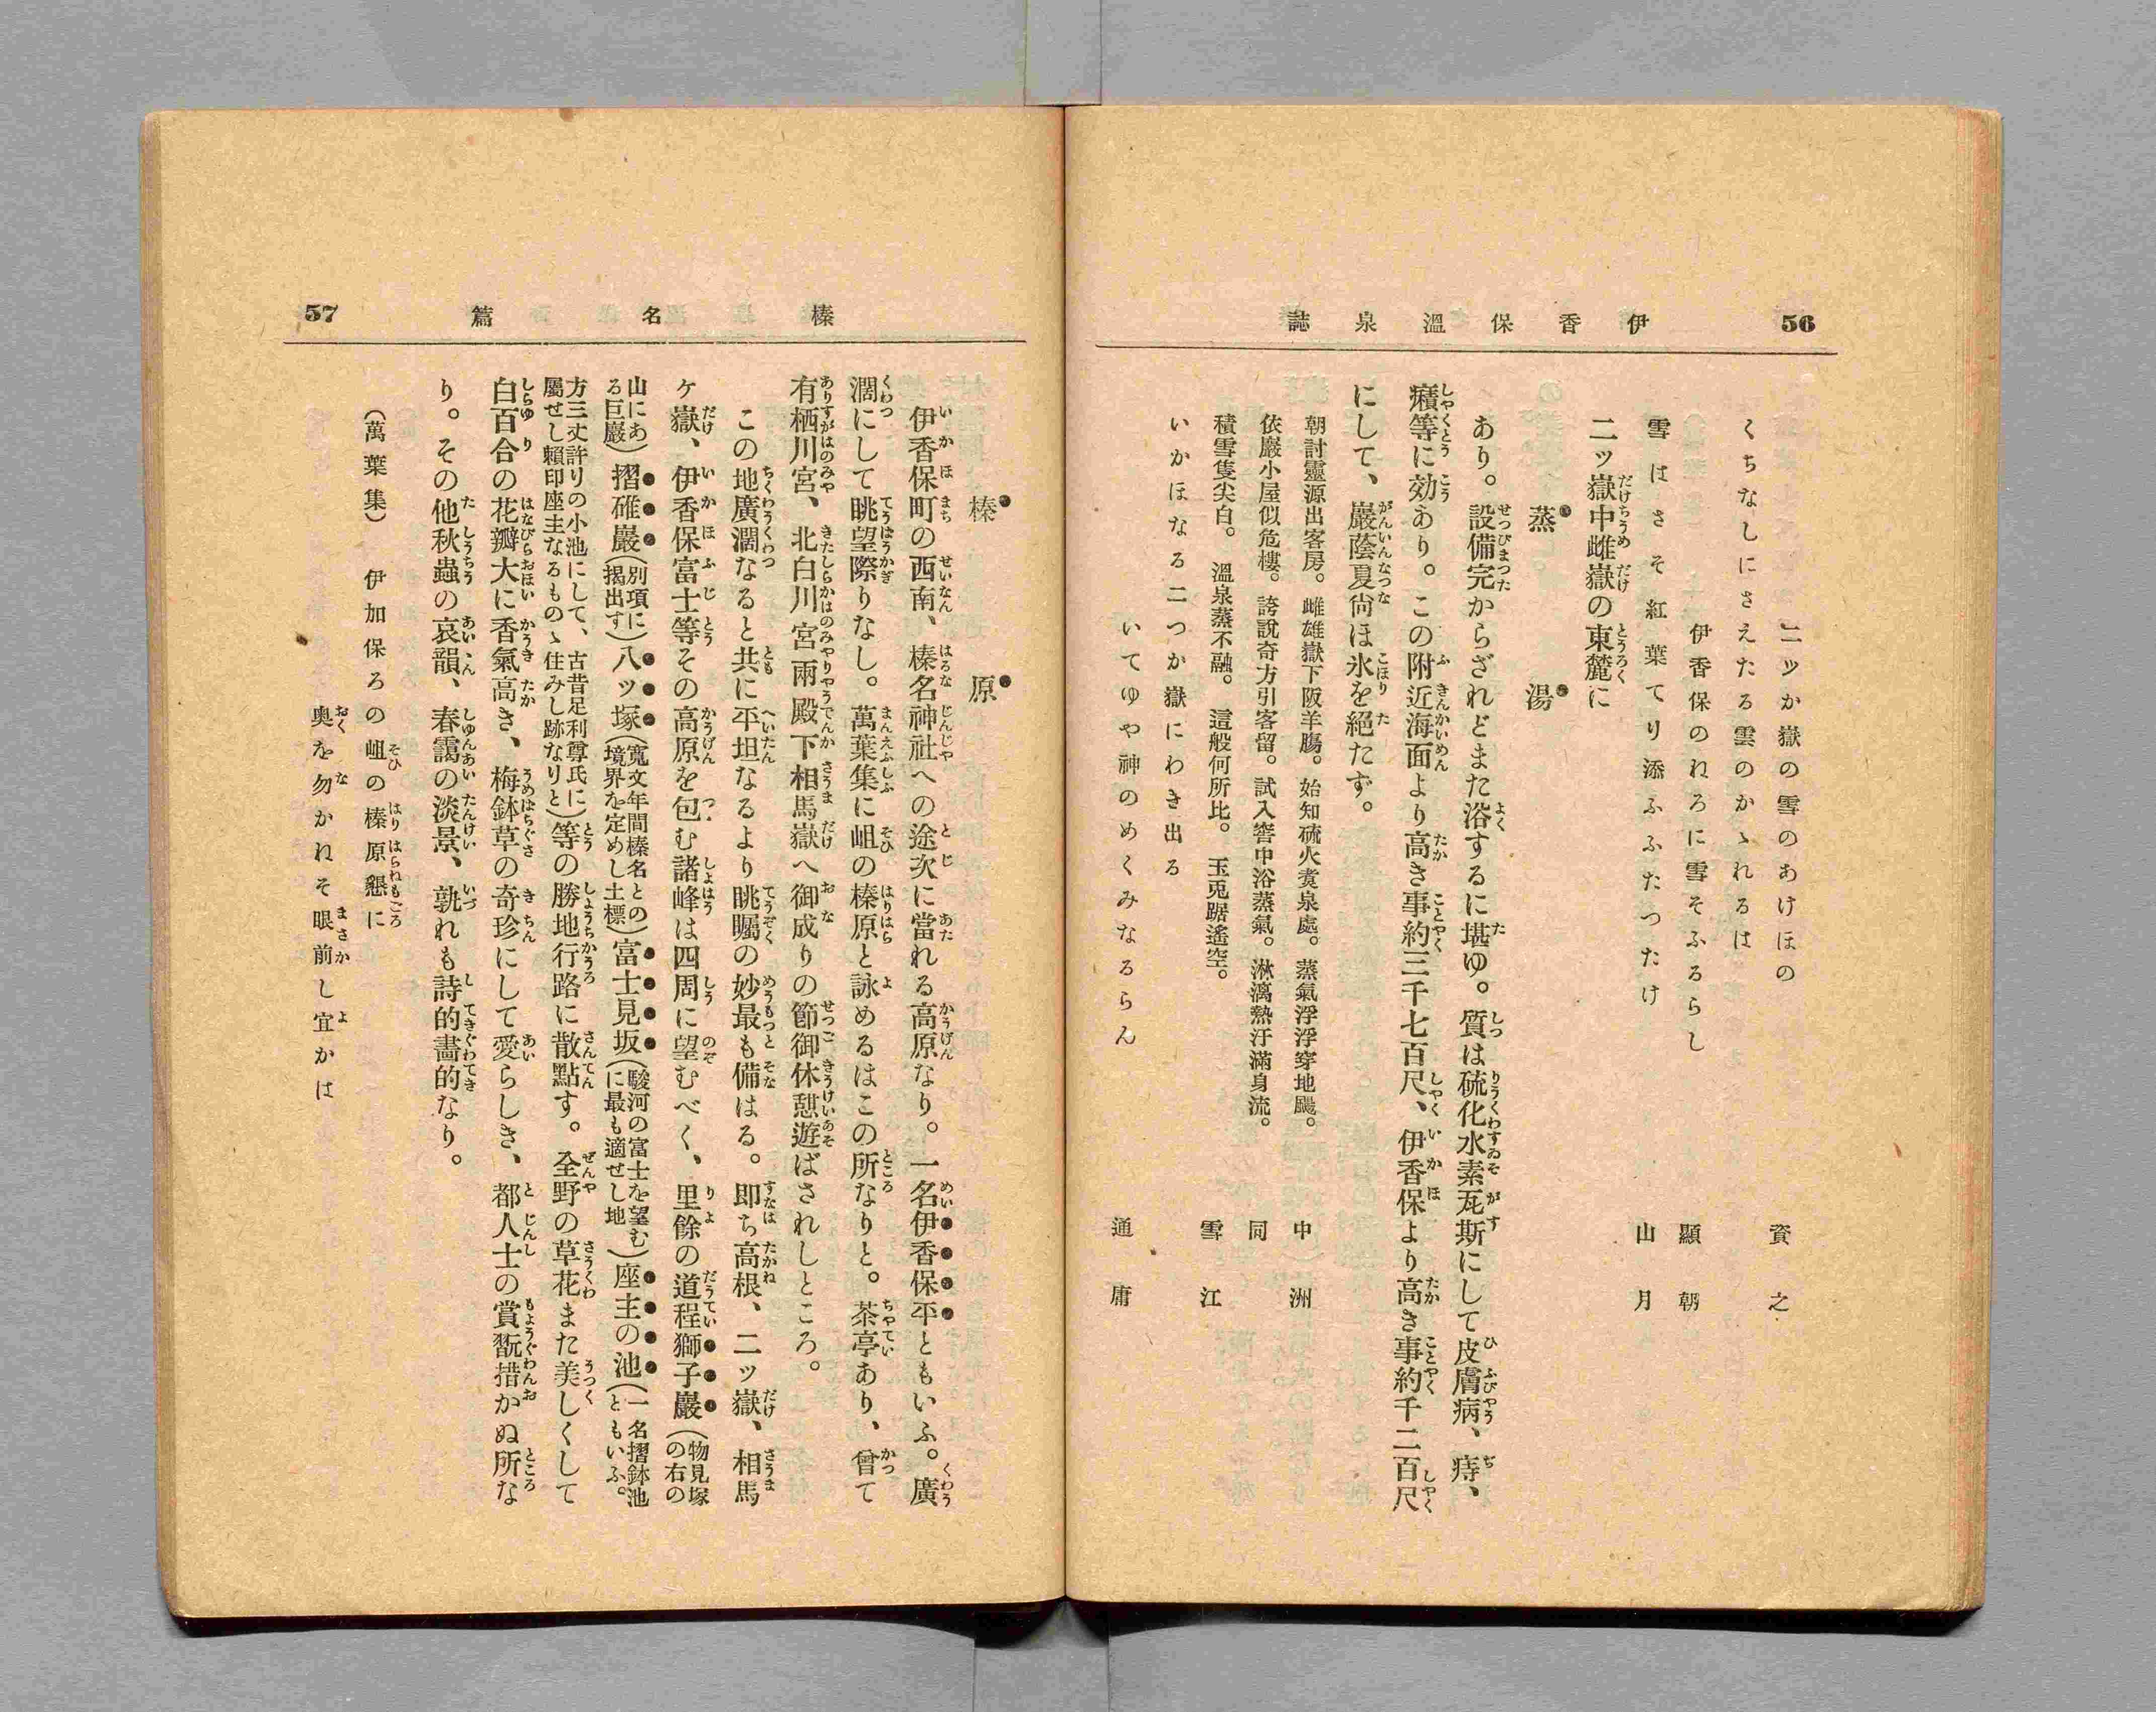 56
伊香保溫泉誌
二ッか嶽の雪のあけほの 資之
くちなしにさえたる雲のかゝれるは
伊香保のねろに雪そふるらし 顯朝
雪はさそ紅葉てり添ふふたつたけ 山月
二ッ嶽中雌嶽の東麓に
蒸湯
あり。設備完からざれどまた浴するに堪ゆ。質は硫化水素瓦斯にして皮膚病、痔、
癪等に効あり。この附近海面より高き事約三千七百尺、伊香保より高き事約千二百尺
にして、巖蔭夏尙ほ氷を絶たず。
朝討靈源出客房。雌雄嶽下阪羊膓。始知硫火煑泉處。蒸氣浮浮穿地颺。 中洲
依巖小屋似危樓。誇說奇方引客留。試入窖中浴蒸氣。淋漓熱汗滿身流。 同
積雪隻尖白。溫泉蒸不融。這般何所比。玉兎踞遙空。 雪江
いかほなる二つか嶽にわき出る
いてゆや神のめくみなるらん 通庸
57
榛名篇
榛原
伊香保町の西南、榛名神社への途次に當れる高原なり。一名伊香保平ともいふ。廣
濶にして眺望際りなし。萬葉集に岨の榛原と詠めるはこの所なりと。茶亭あり、曾て
有栖川宮、北白川宮兩殿下相馬嶽へ御成りの節御休憩遊ばされしところ。
この地廣濶なると共に平坦なるより眺矚の妙最も備はる。即ち高根、二ッ嶽、相馬
ヶ嶽、伊香保富士等その高原を包む諸峰は四周に望むべく、里餘の道程獅子巖(物見塚の右の
山にある巨巖)摺碓巖(別項に揭出す)八ッ塚(寬文年間榛名との境界を定めし土標)富士見坂(駿河の富士を望むに最も適せし地)座主の池(一名摺鉢池ともいふ。
方三丈許りの小池にして、古昔足利尊氏に屬せし賴印座主なるものゝ住みし跡なりと)等の勝地行路に散點す。全野の草花また美しくして
白百合の花瓣大に香氣高き、梅鉢草の奇珍にして愛らしき、都人士の賞翫措かぬ所な
り。その他秋蟲の哀韻、春靄の淡景、孰れも詩的畵的なり。
(萬葉集) 伊加保ろの岨の榛原懇に
奥を勿かねそ眼前し宜かは